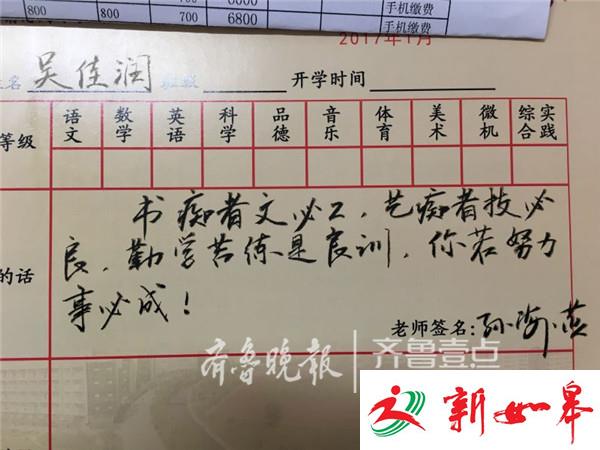 800 800 700 6000 手机缴费
800 700 6800 手机缴费
2017年1月
姓名 吴佳润 班级 开学时间
等级 语文 数学 英语 科学 品德 音乐 体育 美术 微机 综合实践
书痴者文必工，艺痴者技必
良，勤学苦练是良训，你若努力
的话
事必成！
老师签名：孙海燕
齐鲁晚报 齐鲁壹点
新如皋